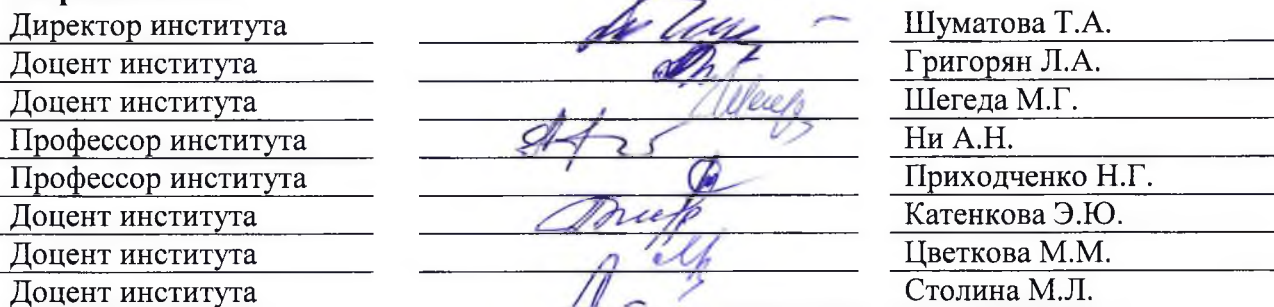 Директор института Шуматова Т.А.
Доцент института Григорян Л.А.
Доцент института Шегеда М.Г.
Профессор института Ни А.Н.
Профессор института Приходченко Н.Г.
Доцент института Катенкова Э.Ю.
Доцент института Цветкова М.М.
Доцент института Столина М.Л.